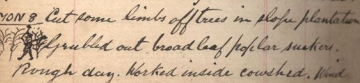 MON 8 Cut some limbs off trees in slope plantation
Grubbed out broad leaf poplar suckers.
Rough day. Worked inside cowshed. Wind